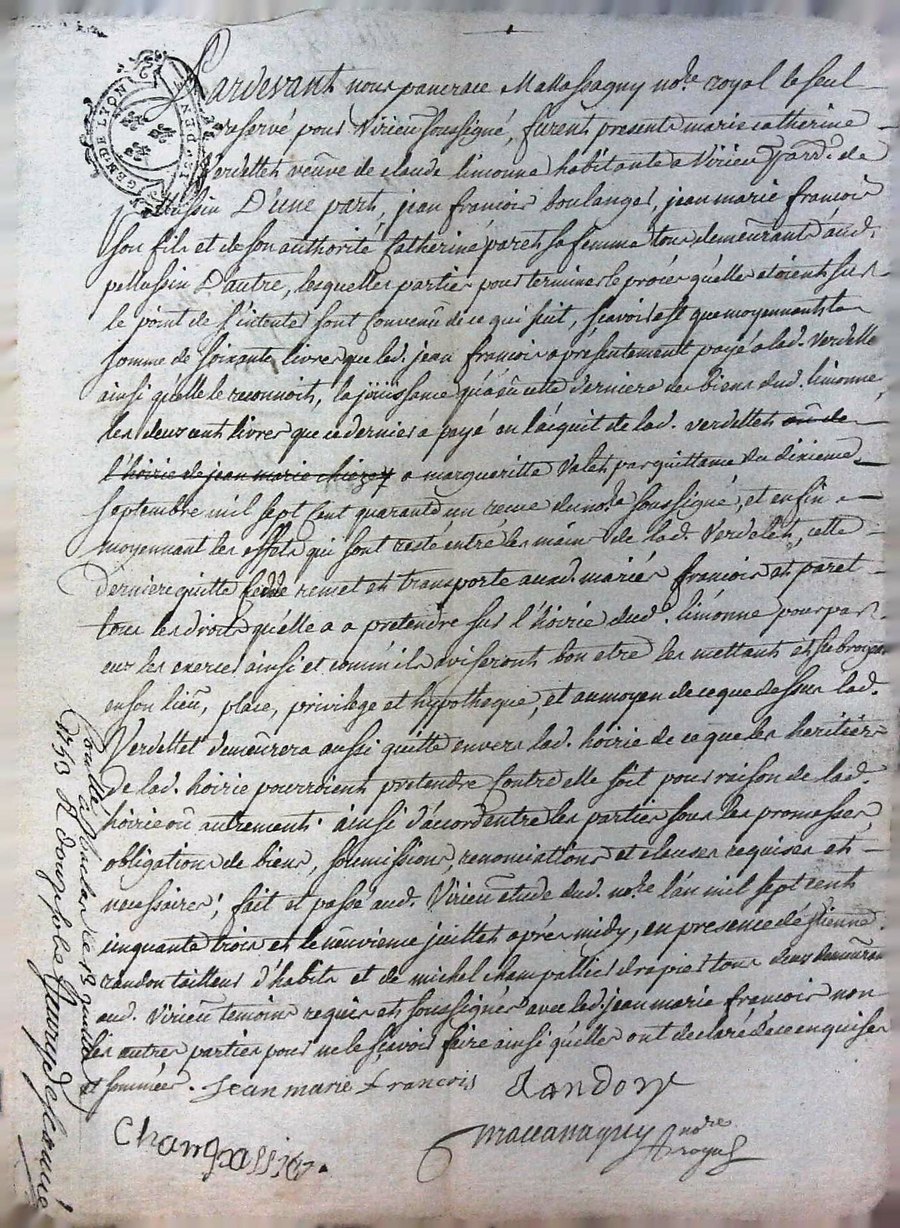 GEN DE LYON
DEN
Pardevant nous pancrace Massanaguy no.re royal le seul
reservé pour Virieu soussigné, furent presents marie catherine
Verdellet veuve de claude limonne habitante a Virieu
pellussin D'une part, jean francois boulanger, jean marie francois
son fils et de son authorité Catherine paret sa femme tous demeûrants aud.
pellussin D'autre, lesquelles parties pour terminer le procés qu'elles etoient sur
le point de s'intenter sont Convenües de ce qui suit, scavoir est que moyennants la
somme de soixante livres que led. jean francois a presentement payé a lad. Verdellet
ainsi qu'elle le reconnoit, la joüissance qu'a eû cette derniere des biens dud. limonne,
les deux cent livres que ce dernier a payé en l'acquit de lad. verdellet
l'hoirie de jean marie a margueritte Valet par quittance du dixieme
septembre mil sept Cent quarante un receue dud. no.re soussigné, et enfin
moyennant les effets qui sont resté entre les mains de lad. Verdelet, cette
derniere quitte cedde remet et transporte auxd. mariés francois et paret
tous les droits qu'elle a a pretendre sur l'hoirie dud. limonne pour par
eux les exercer ainsi et comm'ils aviseront bon etre les mettants et subrogeant
en son lieu, place, privilege et hypotheque, et au moyen de ce que dessus lad.
Verdellet demeûrera aussi quitte envers lad. hoirie de ce que les heritiers
de lad. hoirie pourroient pretendre Contre elle soit pour raison de lad.
hoirie où autrement. ainsi d'accord entre les parties sous les promesses,
obligations de biens, soumissions, renonciations et clauses requises et
necessaires; fait et passé aud. Virieu etude dud. no.re l'an mil sept cent
cinquante trois et le neuvieme juillet aprés midy, en presence d'éstienne
randon tailleur d'habits et de michel champallier drapier tous deux demeûrants
aud. Virieu temoins requis et soussignés avec led. jean marie francois non
les autres parties pour ne le scavoir faire ainsi qu'elles ont declaré de ce enquises
et sommées.
Jean marie francois
Randon
Champallier
massanaguy no.re royal
1753